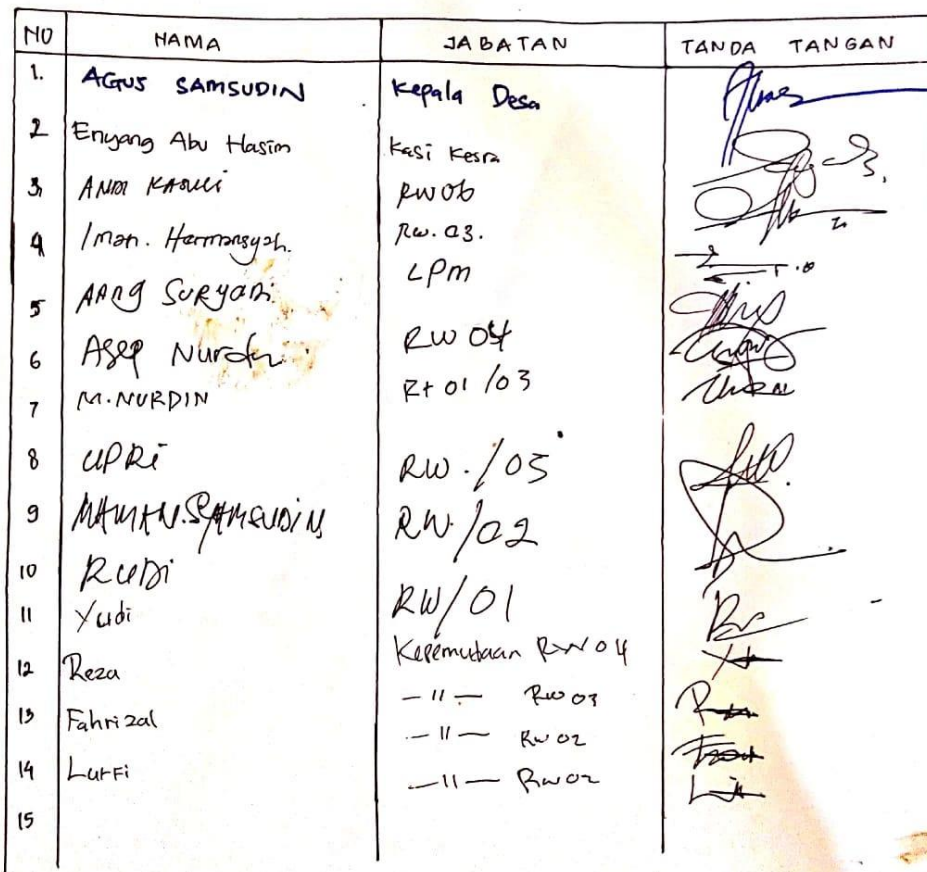 NO NAMA JABATAN TANDA TANGAN
1. AGUS SAMSUDIN Kepala Desa
2 Enyang Abu Hasim Kasi Kesra
3. RW 06
4 Iman. Hermansyah. Rw. 03.
5 AANg SURyani LPM
6 Asep RW 04
7 M. NURDIN Rt 01 /03
8 UPRi RW. /05
9 MAMAN. SYAMSUDIN RW. /02
10 RUDi RW/01
11 Yudi Kepemudaan RW 04
12 Reza — 11 — RW 03
13 Fahrizal — 11 — RW 02
14 Lutfi — 11 — RW 02
15